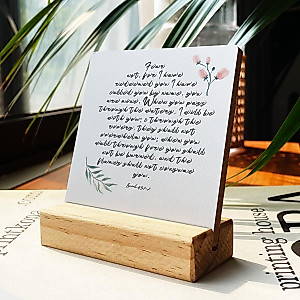 Fear
not, for I have
redeemed you I have
called you by name, you
are mine. When you pass
through the waters, I will be
with you; & through the
rivers, they shall not
overwhelm you; when you
walk through fire you shall
not be burned, and the
flames shall not consume
you.
Isaiah 43:1-2
printing house